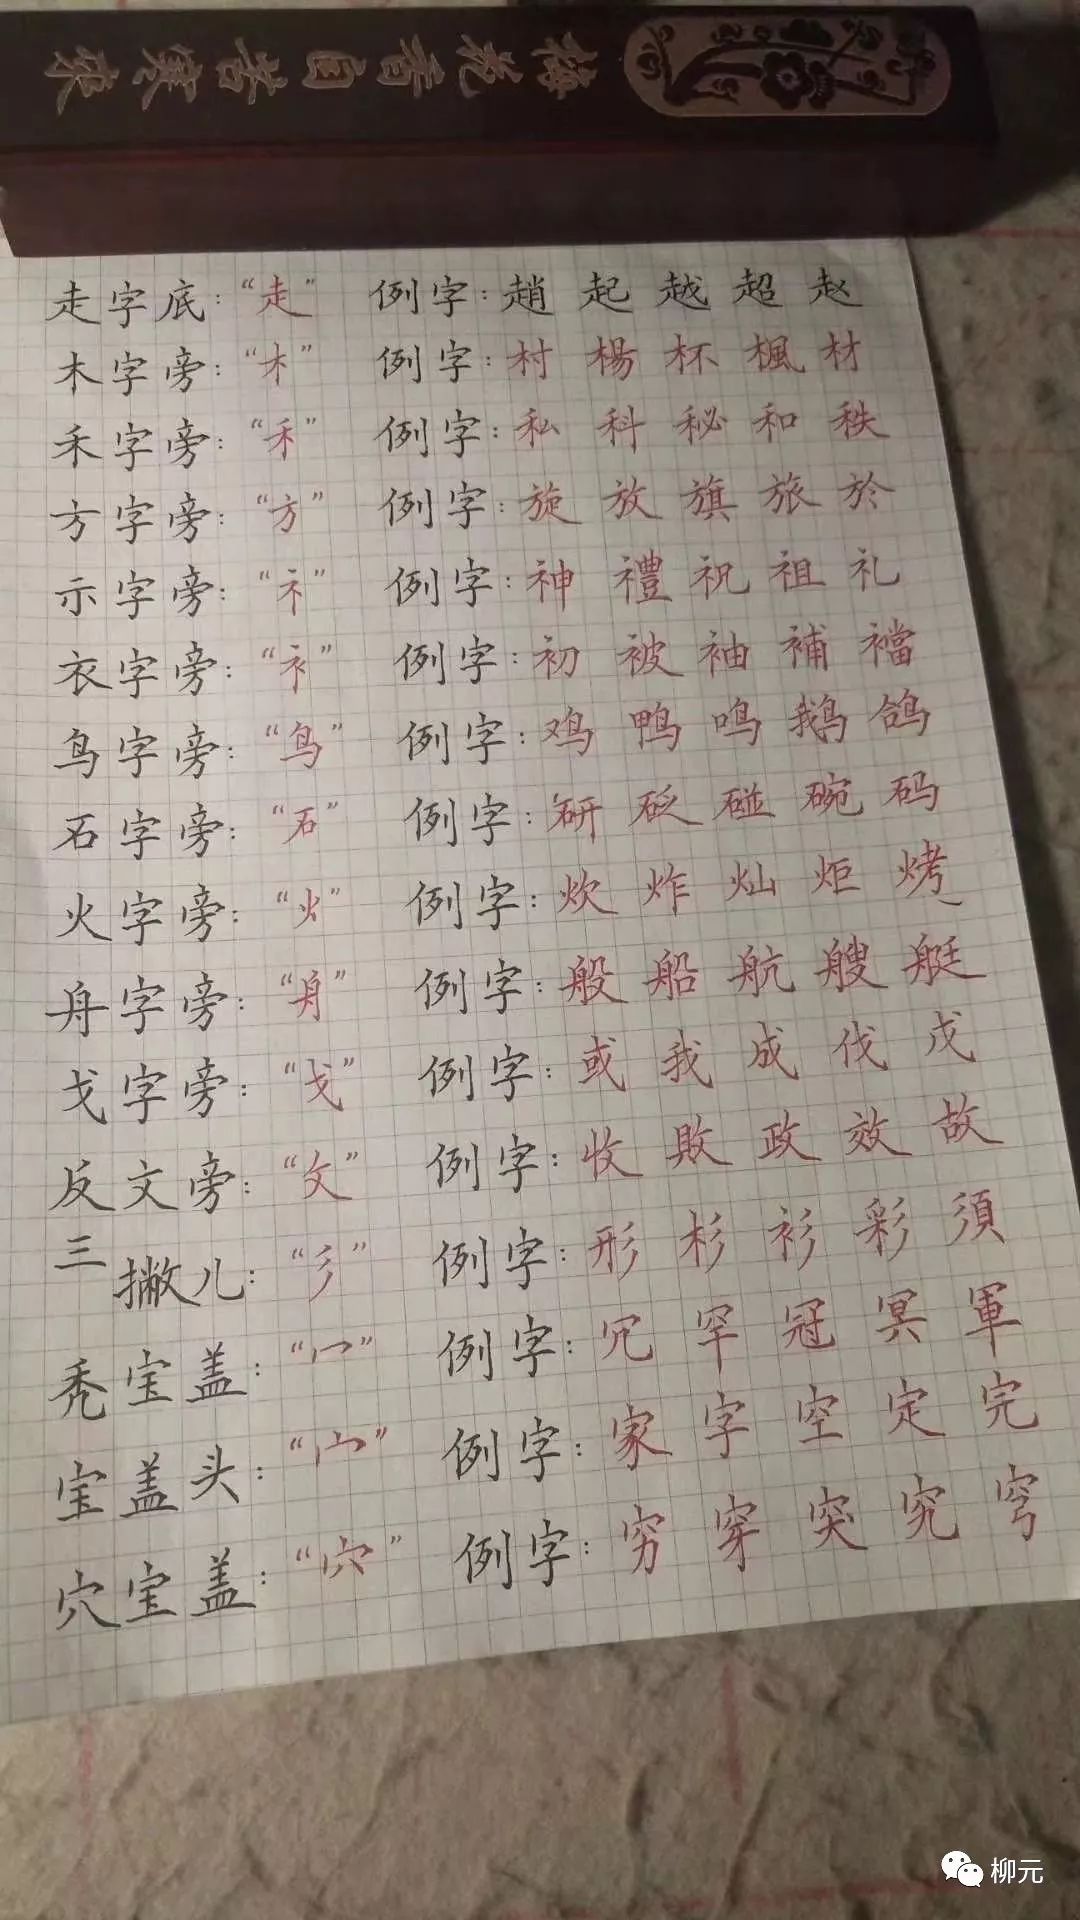 梅花香自苦寒来
走字底：“走” 例字：趙 起 越 超 赵
木字旁：“木” 例字：村 楊 杯 楓 材
禾字旁：“禾” 例字：私 科 秘 和 秩
方字旁：“方” 例字：旋 放 旗 旅 於
示字旁：“礻” 例字：神 禮 祝 祖 礼
衣字旁：“衤” 例字：初 被 袖 補 襠
鸟字旁：“鸟” 例字：鸡 鸭 鸣 鹅 鸽
石字旁：“石” 例字：研 砭 碰 碗 码
火字旁：“火” 例字：炊 炸 灿 炬 烤
舟字旁：“舟” 例字：般 船 航 艘 艇
戈字旁：“戈” 例字：或 我 成 伐 戊
反文旁：“攵” 例字：收 敗 政 效 故
三撇儿：“彡” 例字：形 杉 衫 彩 須
秃宝盖：“冖” 例字：冗 罕 冠 冥 軍
宝盖头：“宀” 例字：家 字 空 定 完
穴宝盖：“穴” 例字：穷 穿 突 究 穹
柳元